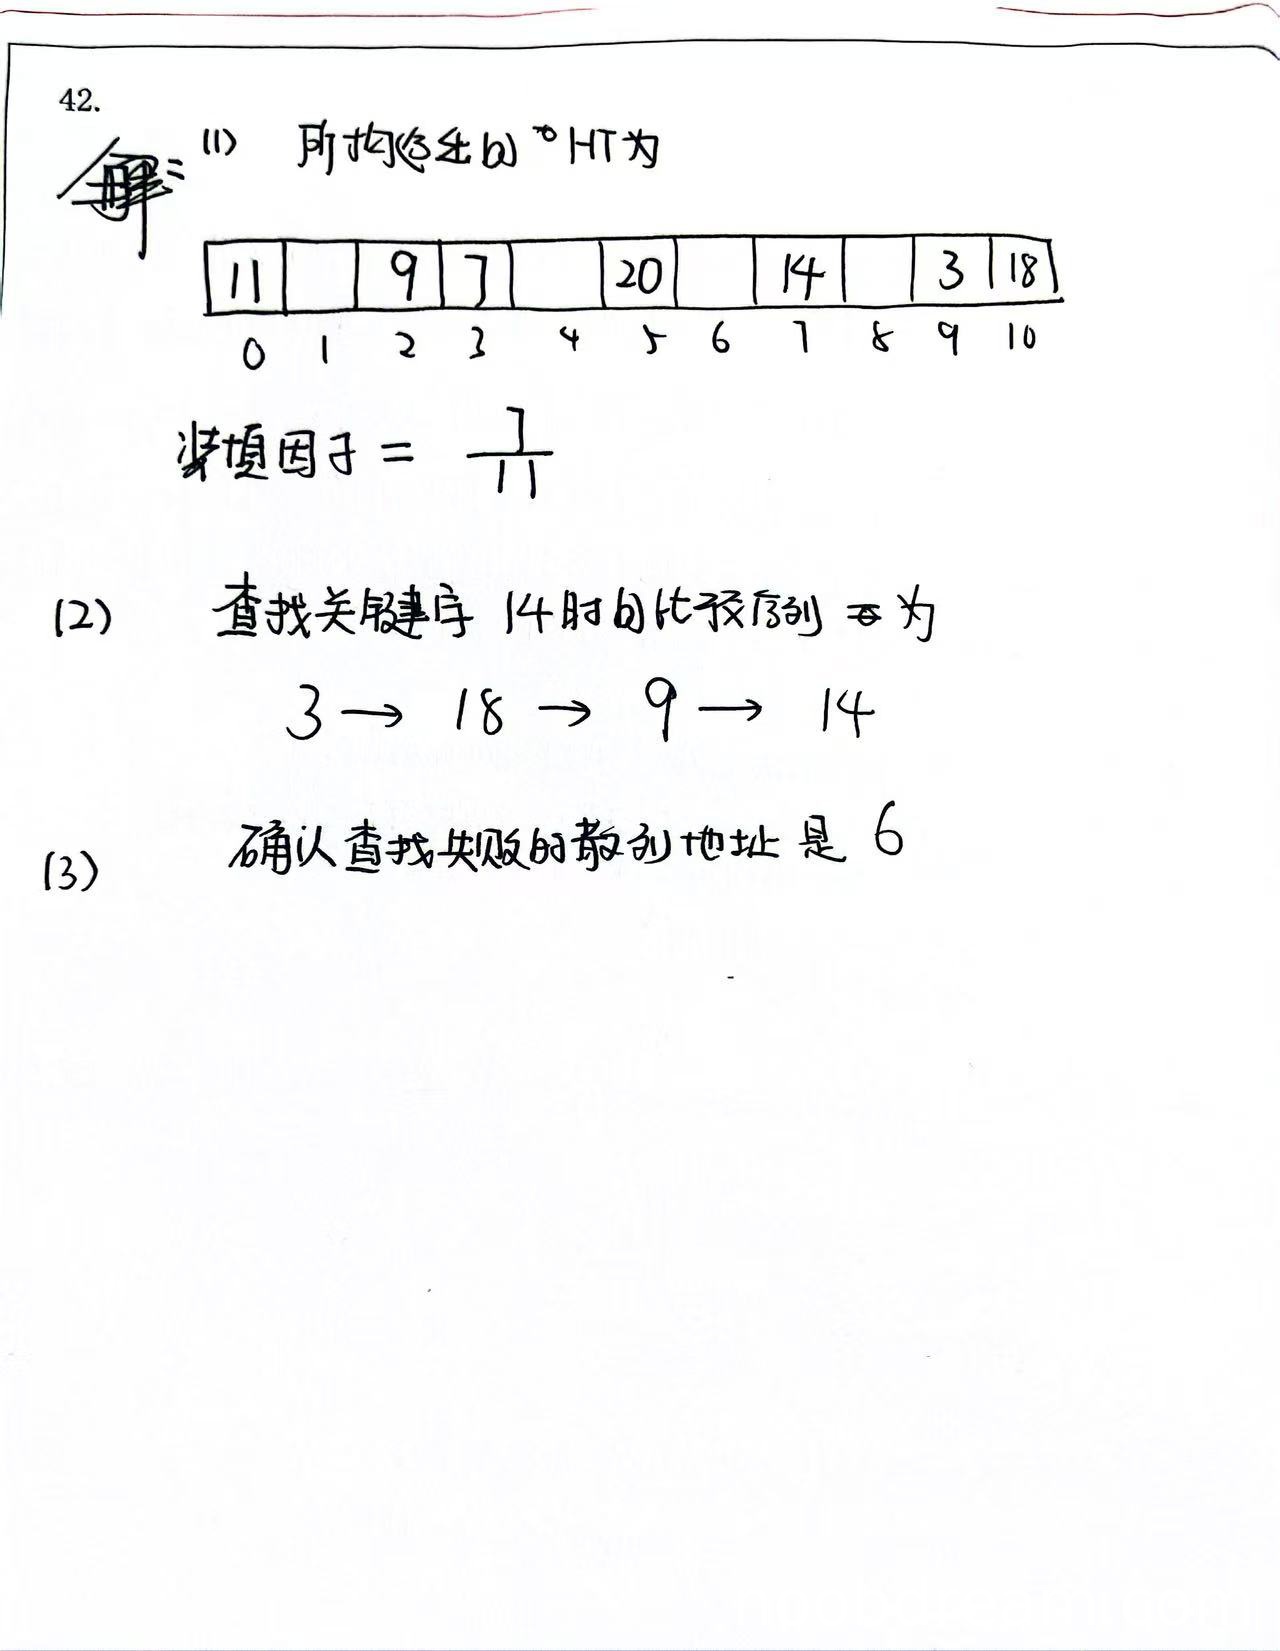 42.
解: (1) 所构造出的HT为
11 9 7 20 14 3 18
0 1 2 3 4 5 6 7 8 9 10
装填因子 = 7/11
(2) 查找关键字 14时的比较序列为
3 → 18 → 9 → 14
(3) 确认查找失败的散列地址是 6